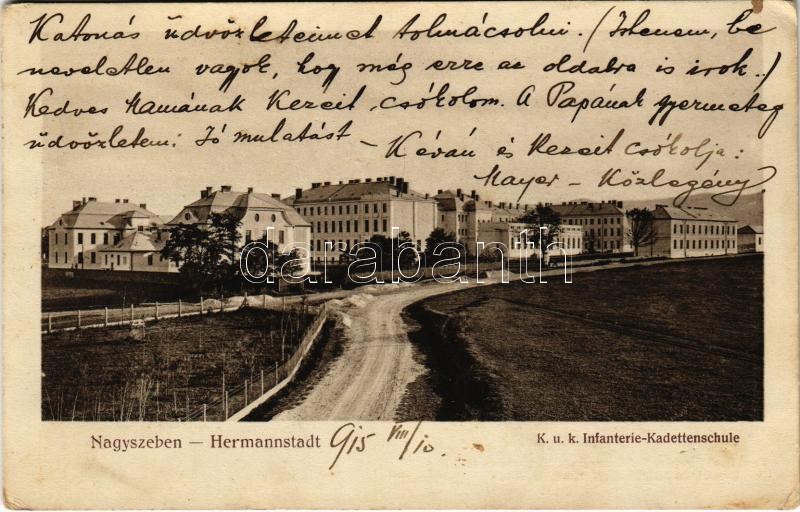 Katonás üdvözleteimet tolmácsolni. (Istenem, be
neveletlen vagyok, hogy még erre az oldalra is irok..)
Kedves Mamának Kezeit csókolom. A Papának gyermeteg
üdvözletem. Jó mulatást – kíván és Kezeit csókolja:
Mayer – Közlegény
darabanth
Nagyszeben — Hermannstadt 915 VIII/10.
K. u. k. Infanterie-Kadettenschule